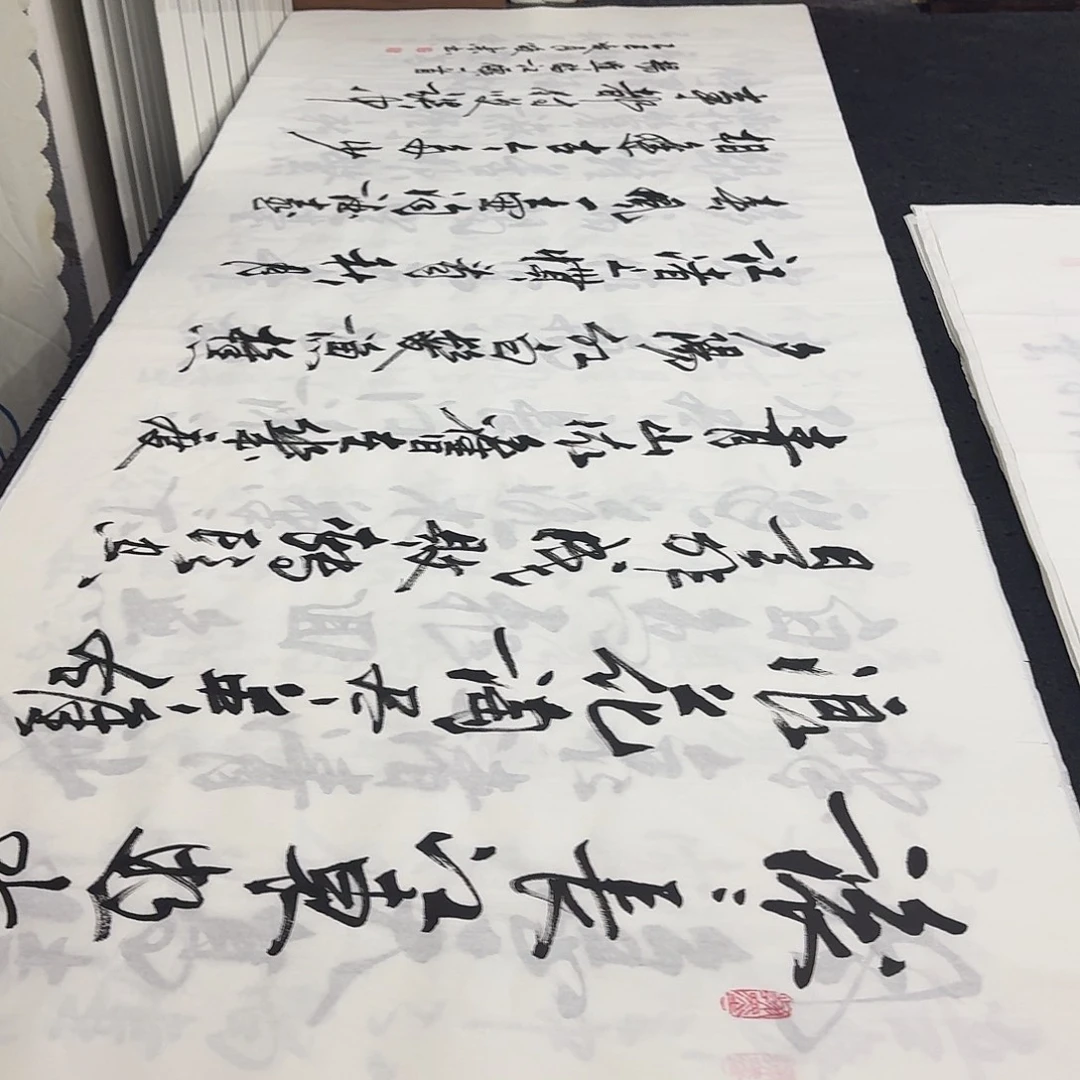 滚滚长江东逝水
浪花淘尽英雄
是非成败转头空
青山依旧在几度
夕阳红白发渔樵
江渚上惯看秋月
春风一壶浊酒喜
相逢古今多少
事都付笑谈中
杨慎临江仙一首
乙巳夏月